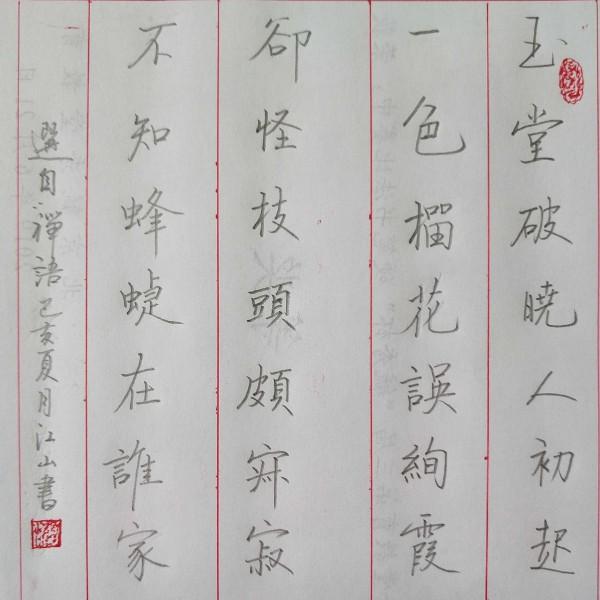 玉堂破曉人初起
一色榴花誤絢霞
卻怪枝頭頗寂寂
不知蜂蜨在誰家
選自禪語己亥夏月江山書